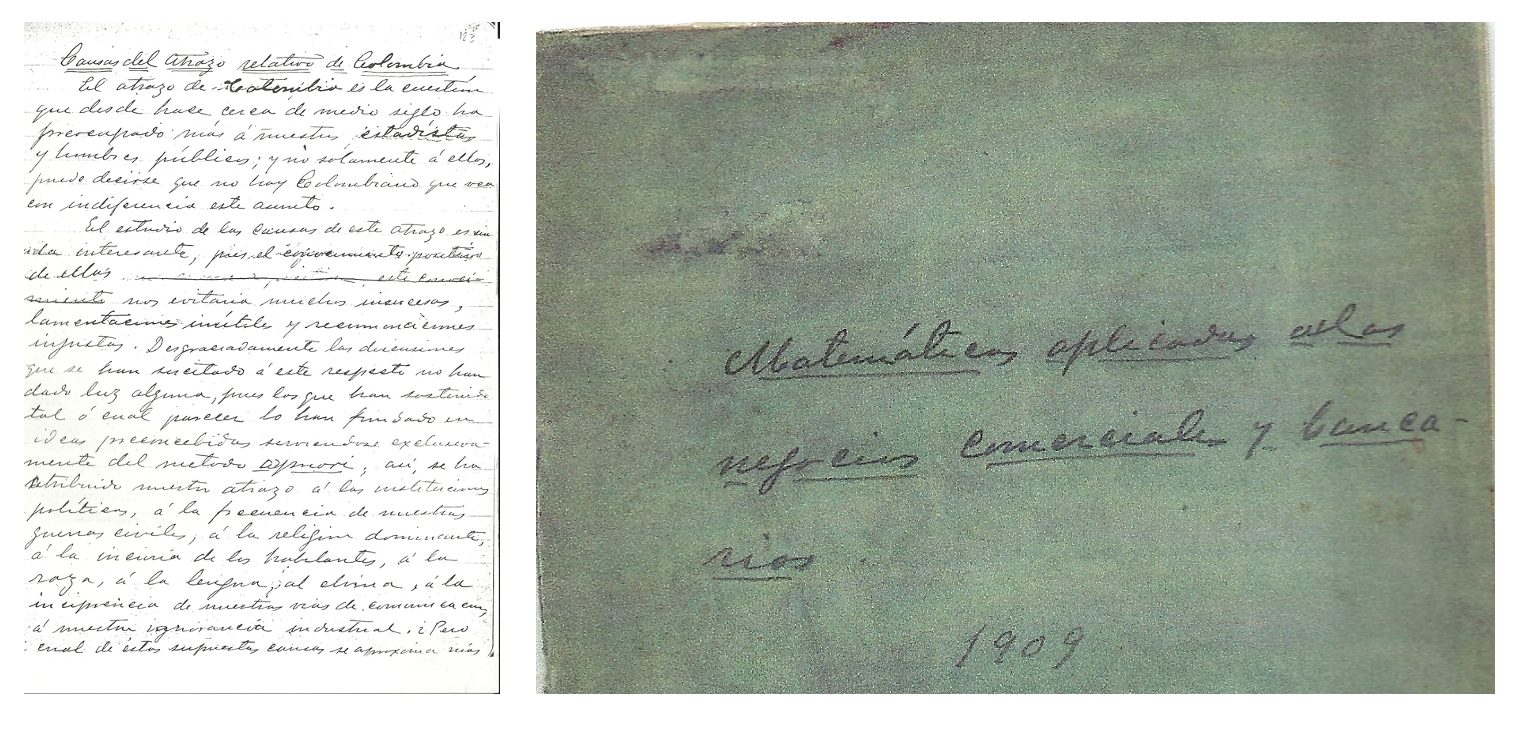 123
Causas del atrazo relativo de Colombia
El atrazo de Colombia es la cuestión
que desde hace cerca de medio siglo ha
preocupado más á nuestros estadistas
y hombres públicos; y no solamente á ellos,
puede decirse que no hay Colombiano que vea
con indiferencia este asunto.
El estudio de las causas de este atrazo es sin
duda interesante, pues el conocimiento positivo
de ellas este conoci-
miento nos evitaria muchos insucesos,
lamentaciones inútiles y recriminaciones
injustas. Desgraciadamente las discusiones
que se han sucitado á este respecto no han
dado luz alguna, pues los que han sostenido
tal ó cual parecer lo han fundado en
ideas preconcebidas serviendose exclusiva-
mente del metodo apriori; así, se ha
atribuido nuestro atrazo á las instituciones
políticas, á la frecuencia de nuestras
guerras civiles, á la religion dominante,
á la incuria de los habitantes, á la
raza, á la lengua, al clima, á la
insipiencia de nuestras vias de comunicacion,
á nuestra ignorancia industrial. ¿Pero
cual de estas supuestas causas se aproxima más
Matemáticas aplicadas a los
negocios comerciales y banca-
rios.
1909